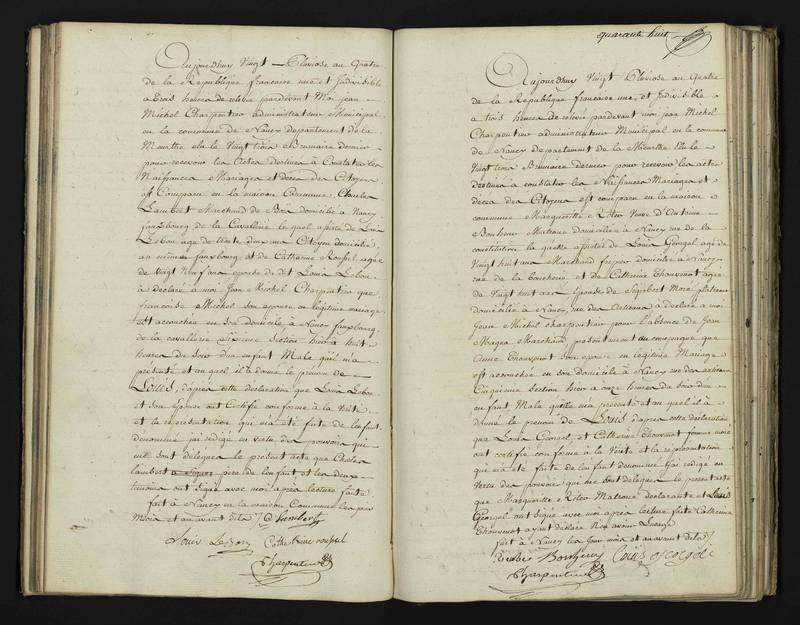 Aujourdhuy Vingt Pluviose an Quatre
de la Republique francaise une et Indivisible
a trois heures de relevée pardevant Moi jean
Michel Charpentier administrateur Municipal
en la commune de Nancy departement de la
Meurthe elu le Vingt trois Brumaire dernier
pour recevoir les Actes destinés à Constater les
Naissances Mariages et décès des Citoyens
est Comparu en la maison Commune, Charles
Lambert Marchand de Bois domicilié à Nancy
fauxbourg de la Cavallerie lequel assisté de Louis
Lebon agé de trente ans Citoyen domicilié
au même fauxbourg et de Catherine Roussel agée
de Vingt Neuf ans epouse du dit Louis Lebon
à déclaré à moi Jean Michel Charpentier que
françoise Michel son epouse en légitime mariage
est accouchée en son domicile à Nancy fauxbourg
de la cavallerie section hier à huit
heures du soir d'un Enfant Male qu'il m'a
présenté et auquel il a donné le prenom de
Louis, d'après cette déclaration que Louis Lebon
et son Epouse ont Certifié conforme à la Vérité
et la représentation qui m'a été faite de l'enfant
denommé jai rédigé en vertu des pouvoirs qui
me sont délégués le présent acte que Charles
lambert père de l'enfant et les deux
temoins ont signé avec moi après lecture faite
fait à Nancy en la maison Commune les jour
Mois et an avant dits
C Lambert
Louis Lebon Catherine roussel
Charpentier
quarante huit
Aujourdhuy Vingt Pluviose an Quatre
de la Republique francaise une et Indivisible
a trois heures de relevée pardevant moi jean Michel
Charpentier administrateur Municipal en la commune
de Nancy departement de la Meurthe Elu le
Vingt trois Brumaire dernier pour recevoir les actes
destinés a constater les Naissances Mariages et
décès des Citoyens est comparu en la maison
commune Marguerite
Matrone domiciliée à Nancy rue de la
constitution la quelle assistée de Louis Georgel agé de
Vingt huit ans Marchand fripier domicilié à Nancy
rue de la boucherie et de Catherine Thouvenot agée
de Vingt huit ans Epouse de Sigisbert Moré platreur
domiciliée à Nancy, rue des Artisans a déclaré a moi
Jean Michel charpentier pour l'absence de Jean
Magra Marchand
anne Thouvenot son epouse en légitime Mariage
est accouchée en son domicile à Nancy rue des artisans
Cinquieme section hier a onze heures du soir d'un
enfant Male qu'elle m'a présenté et au quel il à
donné le prenom de Louis d'après cette déclaration
que Louis Georgel, et Catherine Thouvenot femme moré
ont certifié conforme à la Vérité et la représentation
qui m'a été faite de l'enfant denommé jai redigé en
Vertu des pouvoirs qui me sont délégués le présent acte
que Marguerite Matrone declarante et Louis
Georgel ont signé avec moi après lecture faite Catherine
Thouvenot ayant déclaré N'en avoir l'usage
fait à Nancy les jour mois et an avant dits
Louis Georgel
Charpentier